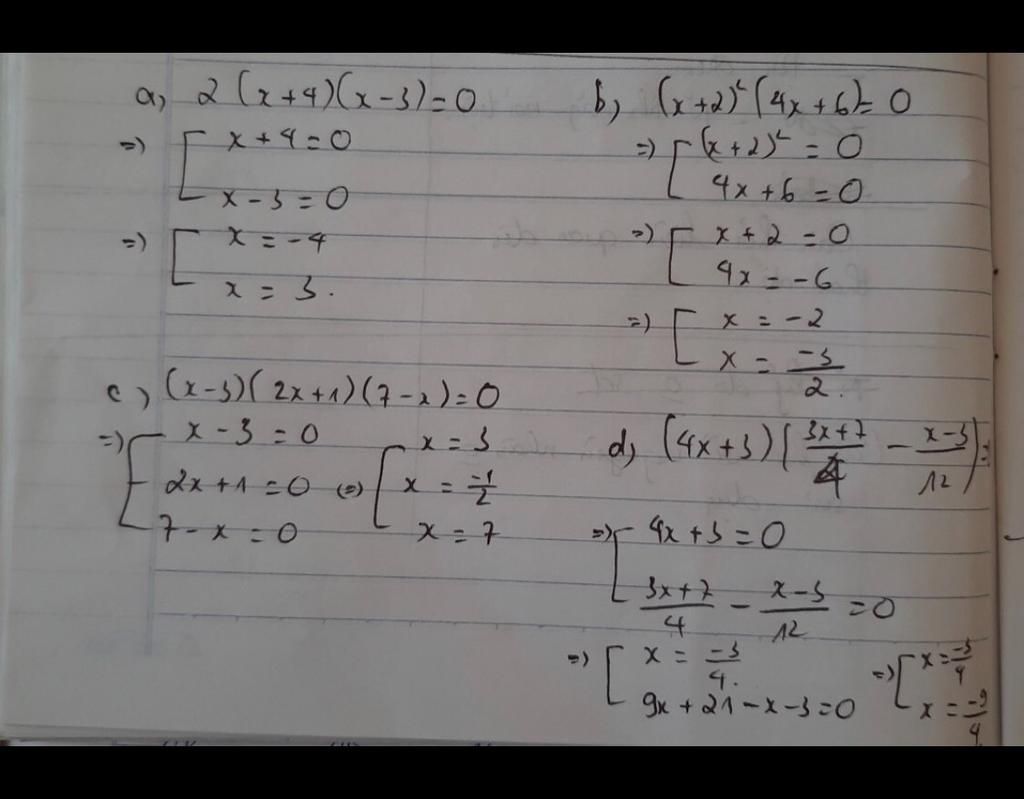 a, 2(x+4)(x-3)=0
=> [ x+4=0
x-3=0
=> [ x=-4
x=3.
b, (x+2)²(4x+6)=0
=> [ (x+2)²=0
4x+6=0
=> [ x+2=0
4x=-6
=> [ x=-2
x=-3/2.
c) (x-3)(2x+1)(7-x)=0
=> [ x-3=0 [ x=3
2x+1=0 (=) x=-1/2
7-x=0 x=7
d, (4x+3)(3x+7/4 - x-3/12)=
=> [ 4x+3=0
3x+7/4 - x-3/12 =0
=> [ x=-3/4. => [ x=-3/4
9x+21-x-3=0 x=-9/4